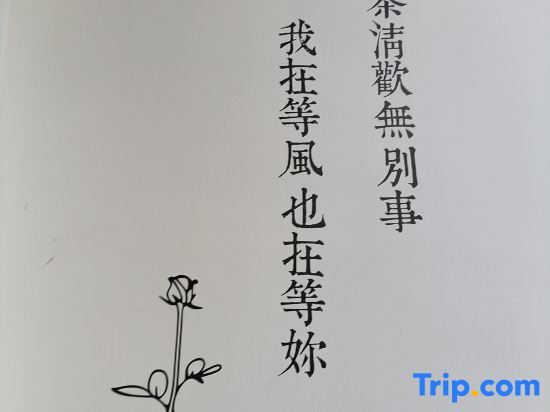 茶清歡無別事
我在等風也在等妳
Trip.com